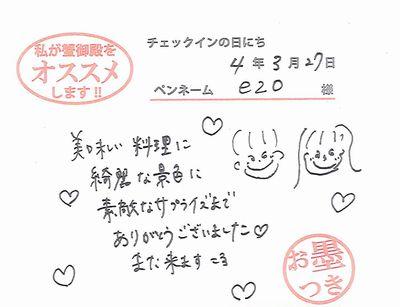 私が蟹御殿を
オススメ
します!!
チェックインの日にち
4年3月27日
ペンネーム e20 様
美味しい料理に
綺麗な景色に
素敵なサプライズまで
ありがとうございました♡
また来ます
お墨
つき